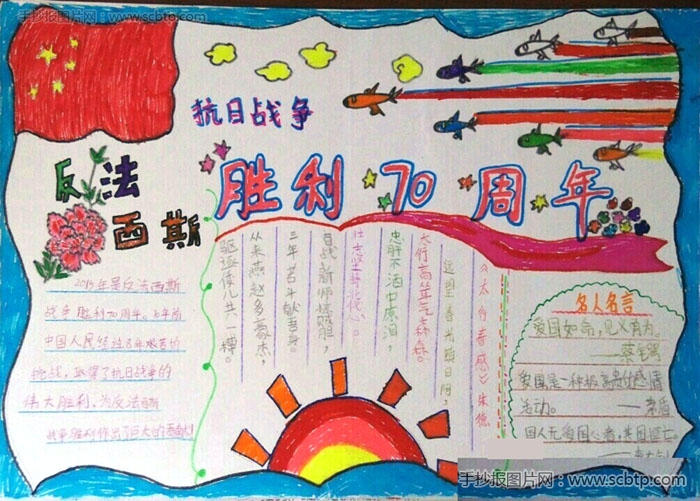 手抄报图片网:www.scbtp.com
抗日战争
反法
西斯
胜利70周年
2015年是反法西斯
战争胜利70周年。
中国人民经
抗战,取得了抗日战争的
伟大胜利,为反法西斯
战争胜利作出了巨大的贡献
《太行春感》朱德
远望春光镇日阴,
太行高耸气森森。
忠肝不洒中原泪,
壮志坚持北伐心。
百战新师惊贼胆,
三年苦斗献吾身。
从来燕赵多豪杰,
驱逐倭儿共一樽。
名人名言
爱国如命,见义勇为。
爱国是一种极高贵的感情
活动。——茅盾
国人无爱国心者,其国恒亡。
手抄报图片网:www.scbtp.com